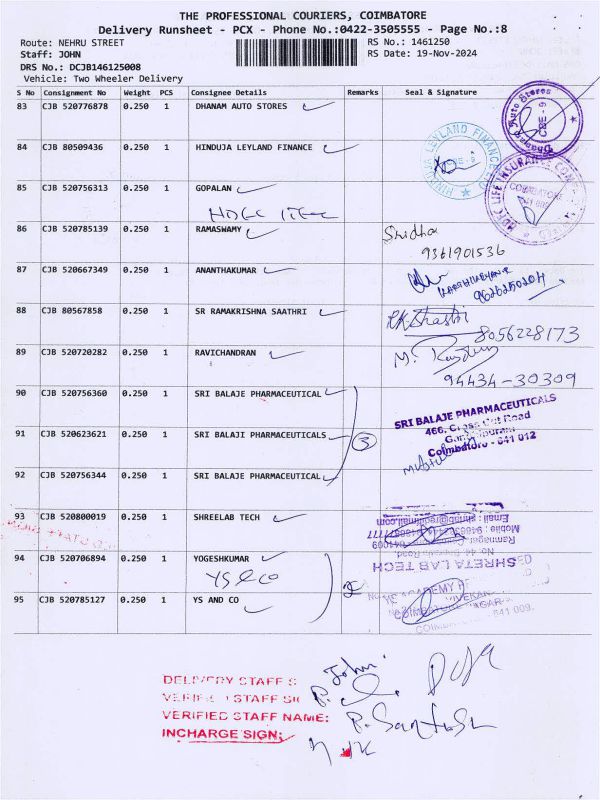 THE PROFESSIONAL COURIERS, COIMBATORE
Delivery Runsheet - PCX - Phone No.:0422-3505555 - Page No.:8
Route: NEHRU STREET RS No.: 1461250
Staff: JOHN RS Date: 19-Nov-2024
DRS No.: DCJB146125008
Vehicle: Two Wheeler Delivery
S No Consignment No Weight PCS Consignee Details Remarks Seal & Signature
83 CJB 520776878 0.250 1 DHANAM AUTO STORES
84 CJB 80509436 0.250 1 HINDUJA LEYLAND FINANCE
85 CJB 520756313 0.250 1 GOPALAN
86 CJB 520785139 0.250 1 RAMASWAMY
Sridha
9361901536
87 CJB 520667349 0.250 1 ANANTHAKUMAR
88 CJB 80567858 0.250 1 SR RAMAKRISHNA SAATHRI
8056228173
89 CJB 520720282 0.250 1 RAVICHANDRAN
94434-30309
90 CJB 520756360 0.250 1 SRI BALAJE PHARMACEUTICAL
SRI BALAJE PHARMACEUTICALS
466, Cross Cut Road
Coimbatore - 641 012
91 CJB 520623621 0.250 1 SRI BALAJI PHARMACEUTICALS 3
92 CJB 520756344 0.250 1 SRI BALAJE PHARMACEUTICAL
93 CJB 520800019 0.250 1 SHREELAB TECH
SHRETA LAB TECH
94 CJB 520706894 0.250 1 YOGESHKUMAR
YS & CO
95 CJB 520785127 0.250 1 YS AND CO
John
DELIVERY STAFF S
VERIFIED STAFF SI
VERIFIED STAFF NAME: P. Santosh
INCHARGE SIGN: